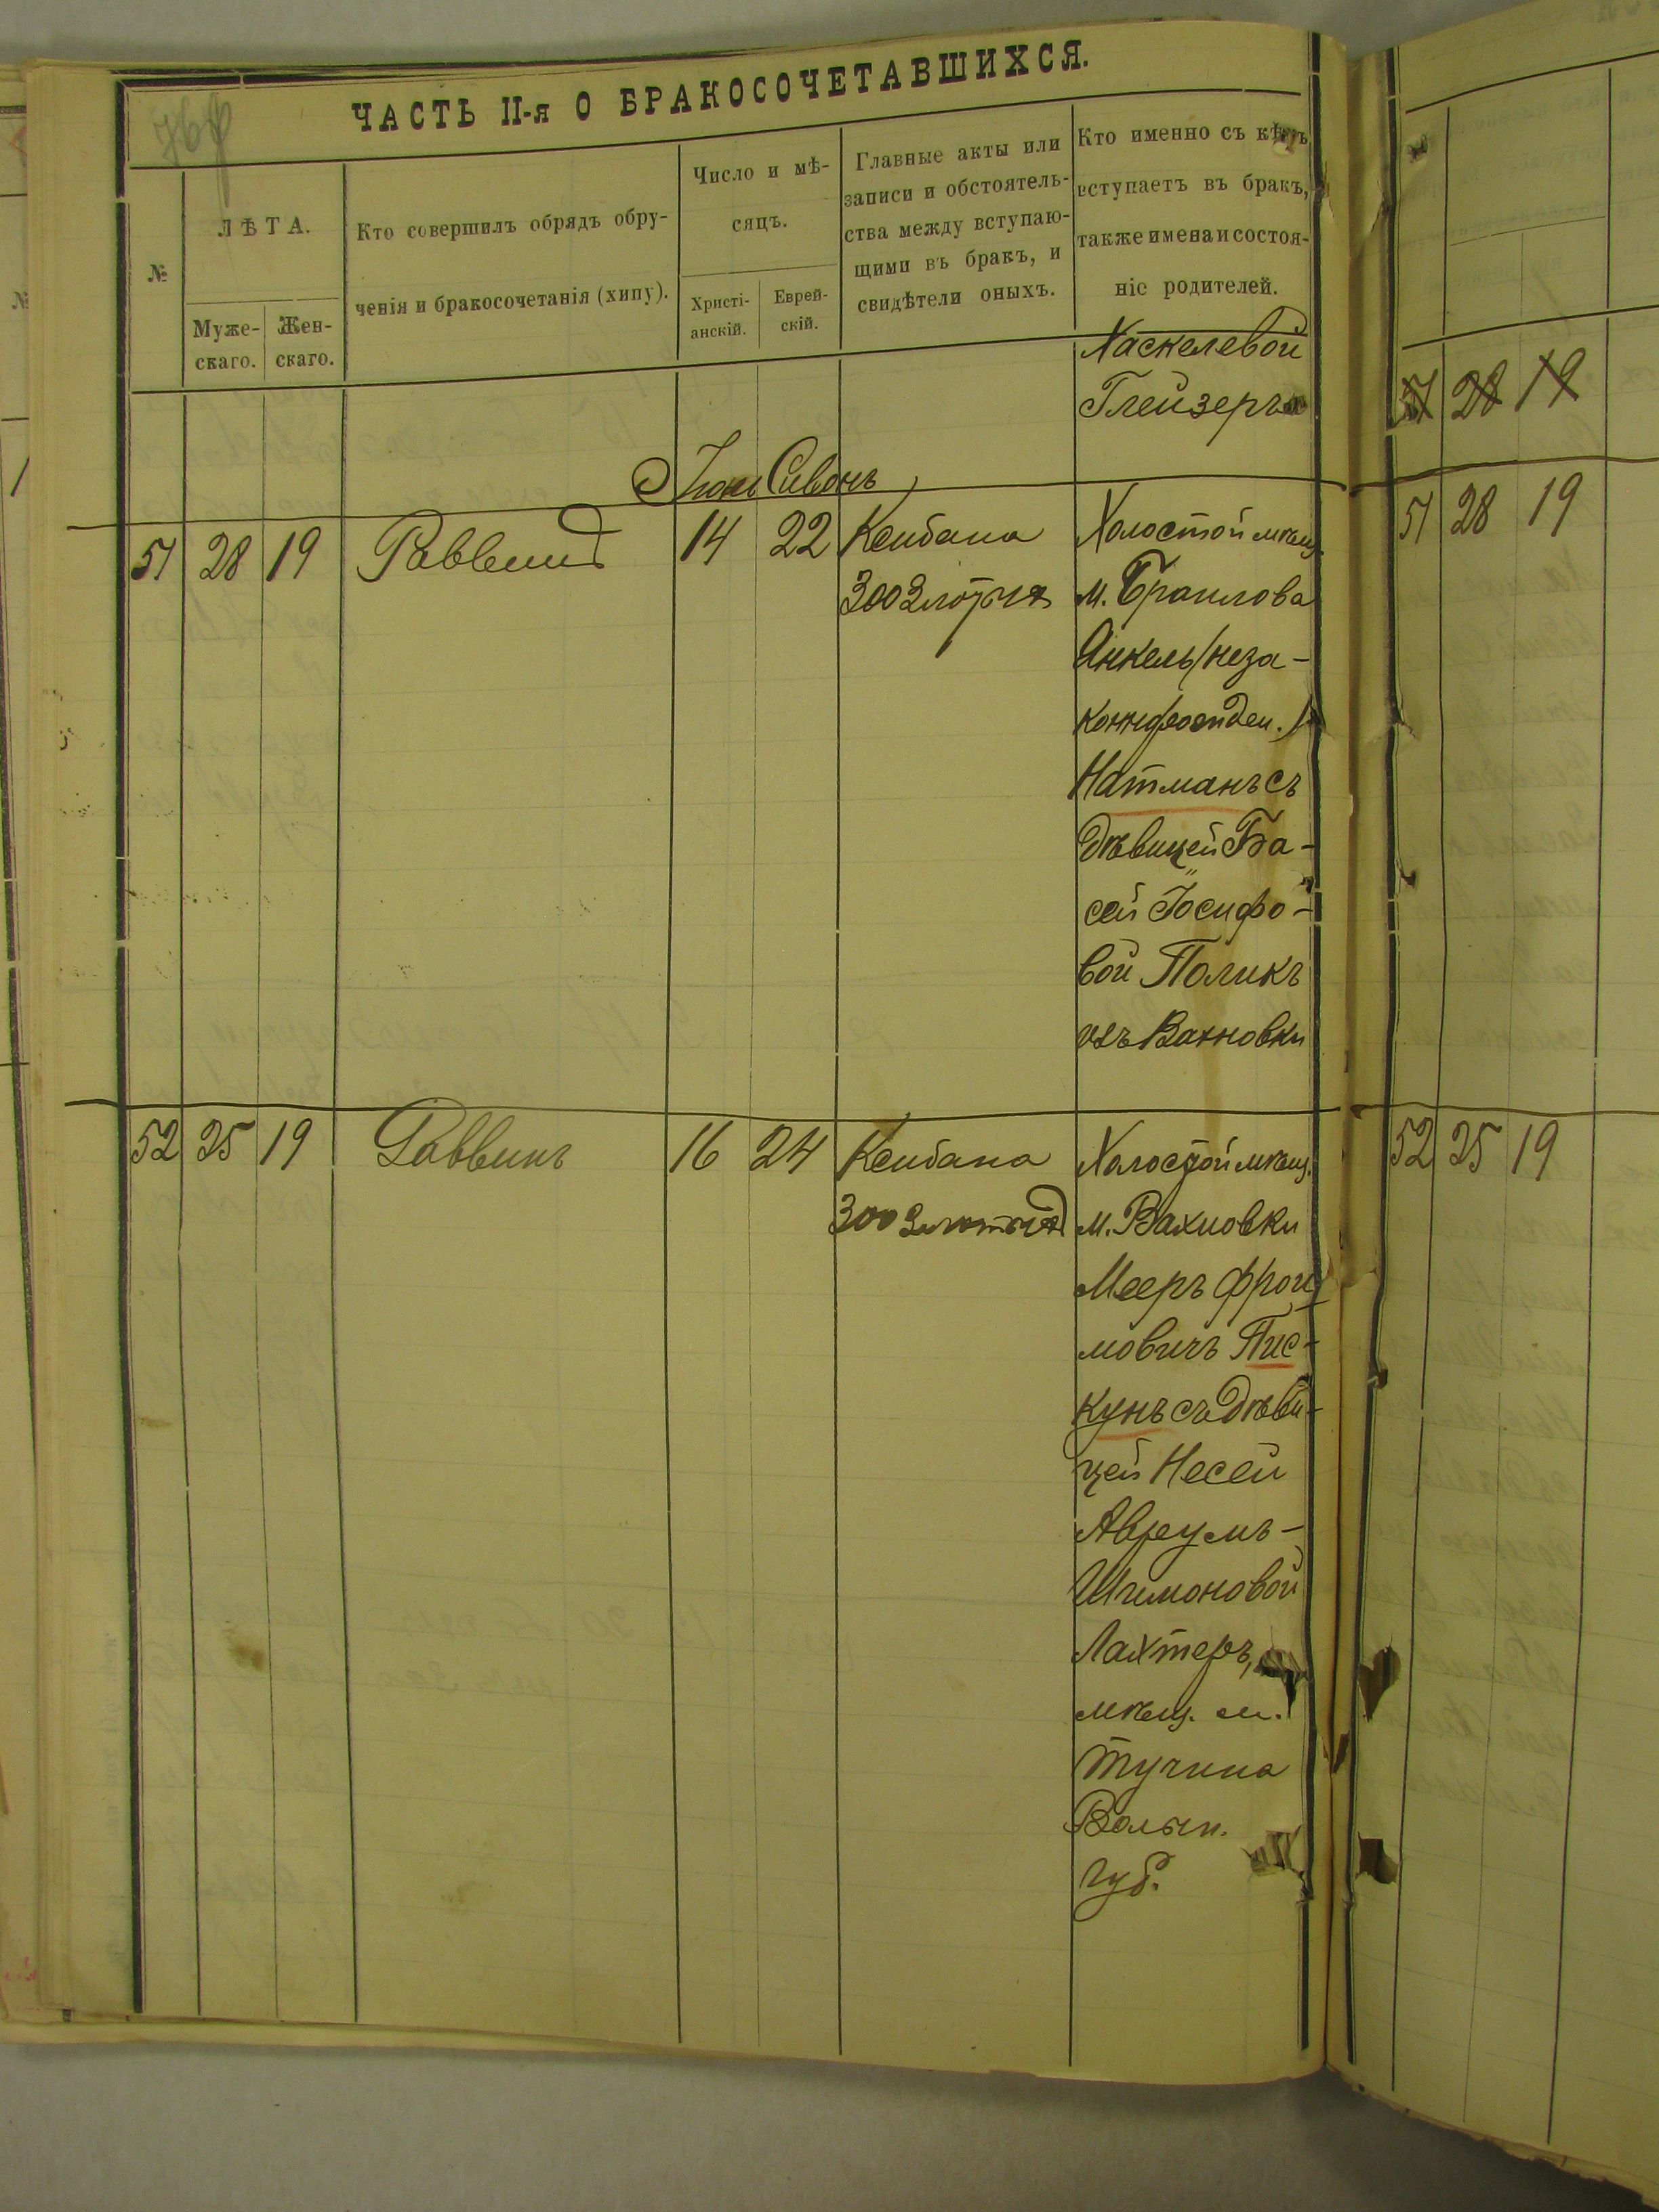 ЧАСТЬ II-я О БРАКОСОЧЕТАВШИХСЯ.
№
ЛѢТА.
Муже-
скаго.
Жен-
скаго.
Кто совершилъ обрядъ обру-
ченія и бракосочетанія (хипу).
Число и мѣ-
сяцъ.
Христі-
анскій.
Еврей-
скій.
Главные акты или
записи и обстоятель-
ства между вступаю-
щими въ бракъ, и
свидѣтели оныхъ.
Кто именно съ кѣмъ
вступаетъ въ бракъ,
также имена и состоя-
ніе родителей.
Хаскелевой
Глейзеръ
Іюнь Сивонъ
51 28 19 Раввинъ 14 22 Ксибана
300 Злотыхъ
Холостой мѣщ.
м. Браилова
Янкель (неза-
коннорожден.)
Натманъ съ
дѣвицей Ба-
сей Іосифо-
вой Поликъ
изъ Вахновки
52 25 19 Раввинъ 16 24 Ксибана
300 Злотыхъ
Холостой мѣщ.
м. Вахновки
Мееръ Фрои-
мовичъ Пис-
кунъ съ дѣви-
цей Несей
Авrумъ-
Шимоновой
Лахтеръ,
мѣщ. м.
Тучина
Волын.
губ.
51 28 19
51 28 19
52 25 19